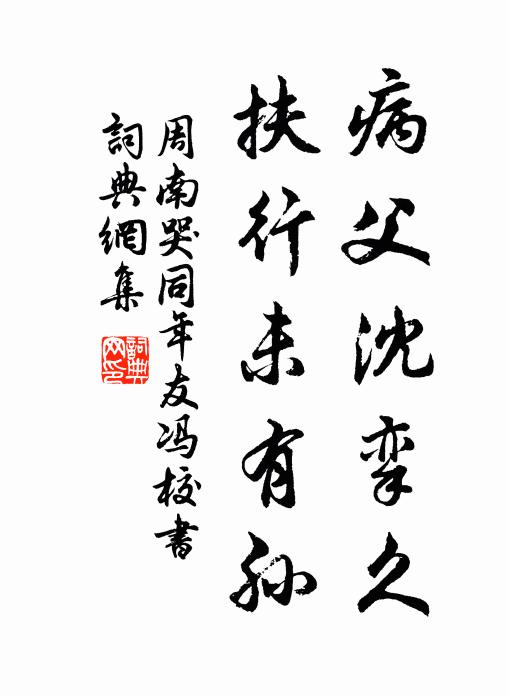 病父沈挛久
扶行未有孙
周南哭同年友冯校書
詞典網集
詞典网印